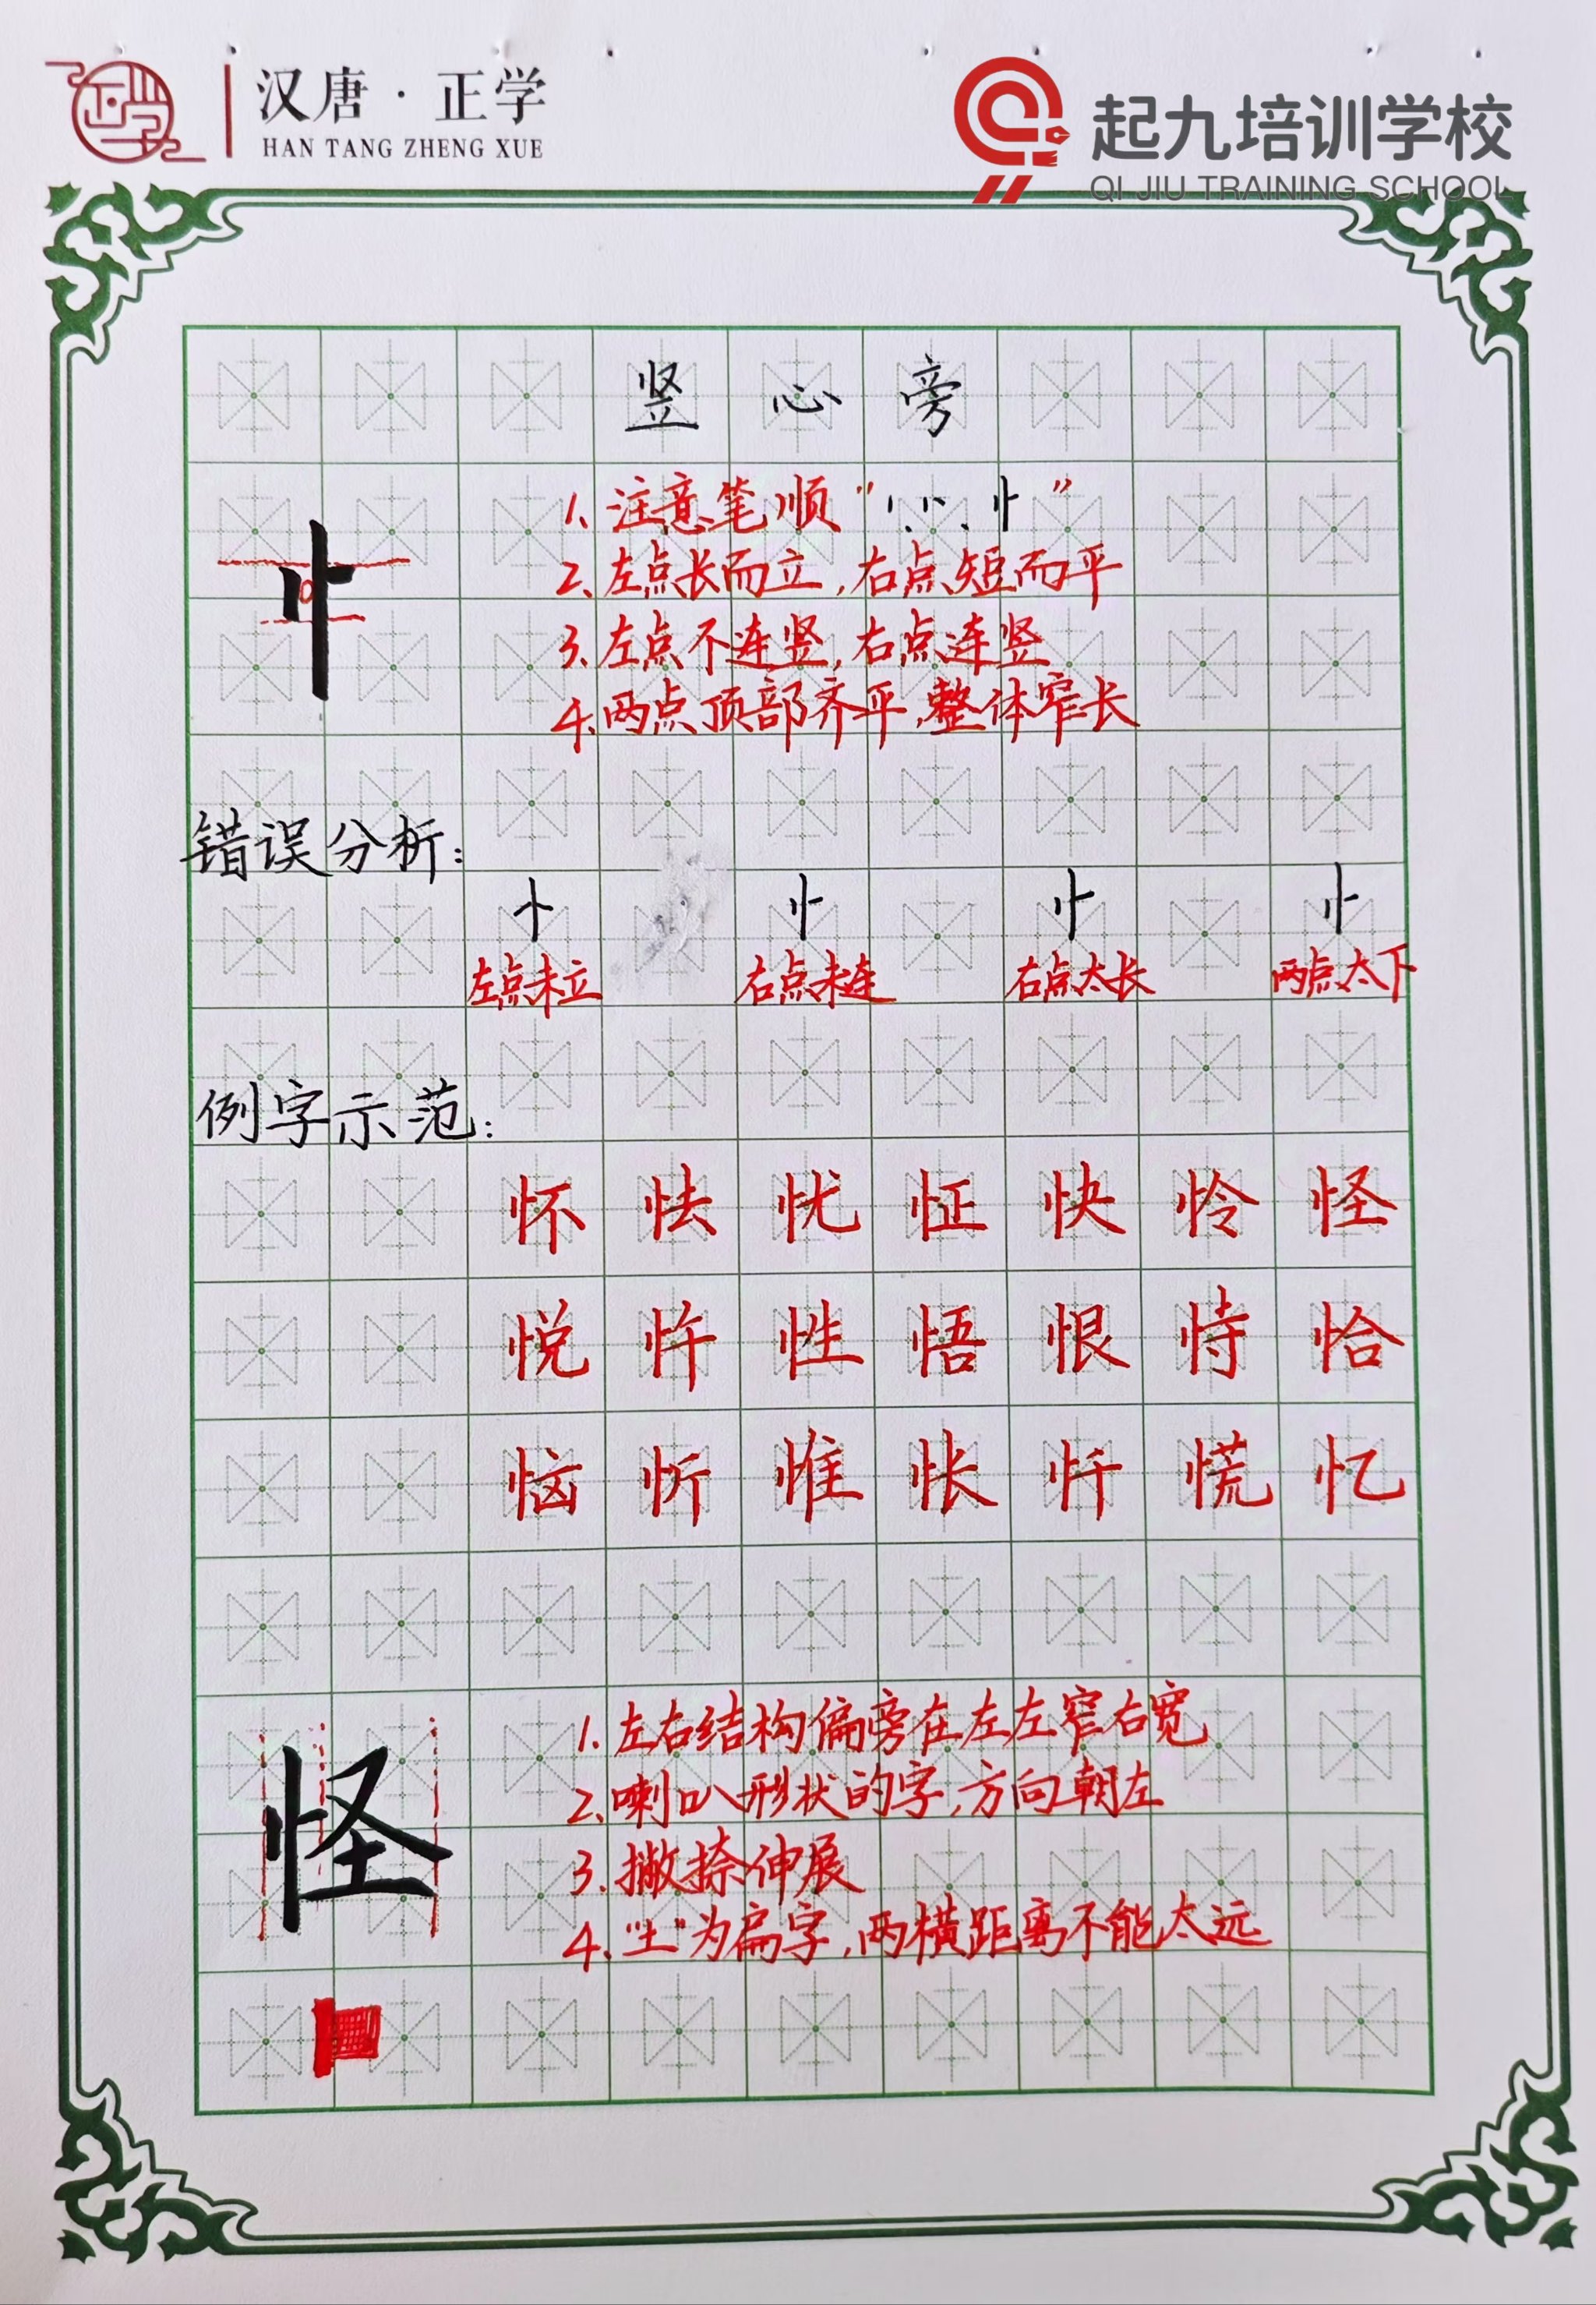 汉唐·正学
HAN TANG ZHENG XUE
起九培训学校
QI JIU TRAINING SCHOOL
竖心旁
1、注意笔顺“丶、丷、忄”
2、左点长而立,右点短而平
3、左点不连竖,右点连竖
4、两点顶部齐平,整体窄长
忄
错误分析:
忄 忄 忄 忄
左点未立 右点未连 右点太长 两点太下
例字示范:
怀 怯 忧 怔 快 怜 怪
悦 忤 性 悟 恨 恃 恰
恼 忻 惟 怅 忏 慌 忆
怪
1、左右结构偏旁在左左窄右宽
2、喇叭形状的字,方向朝左
3、撇捺伸展
4、“土”为扁字,两横距离不能太远